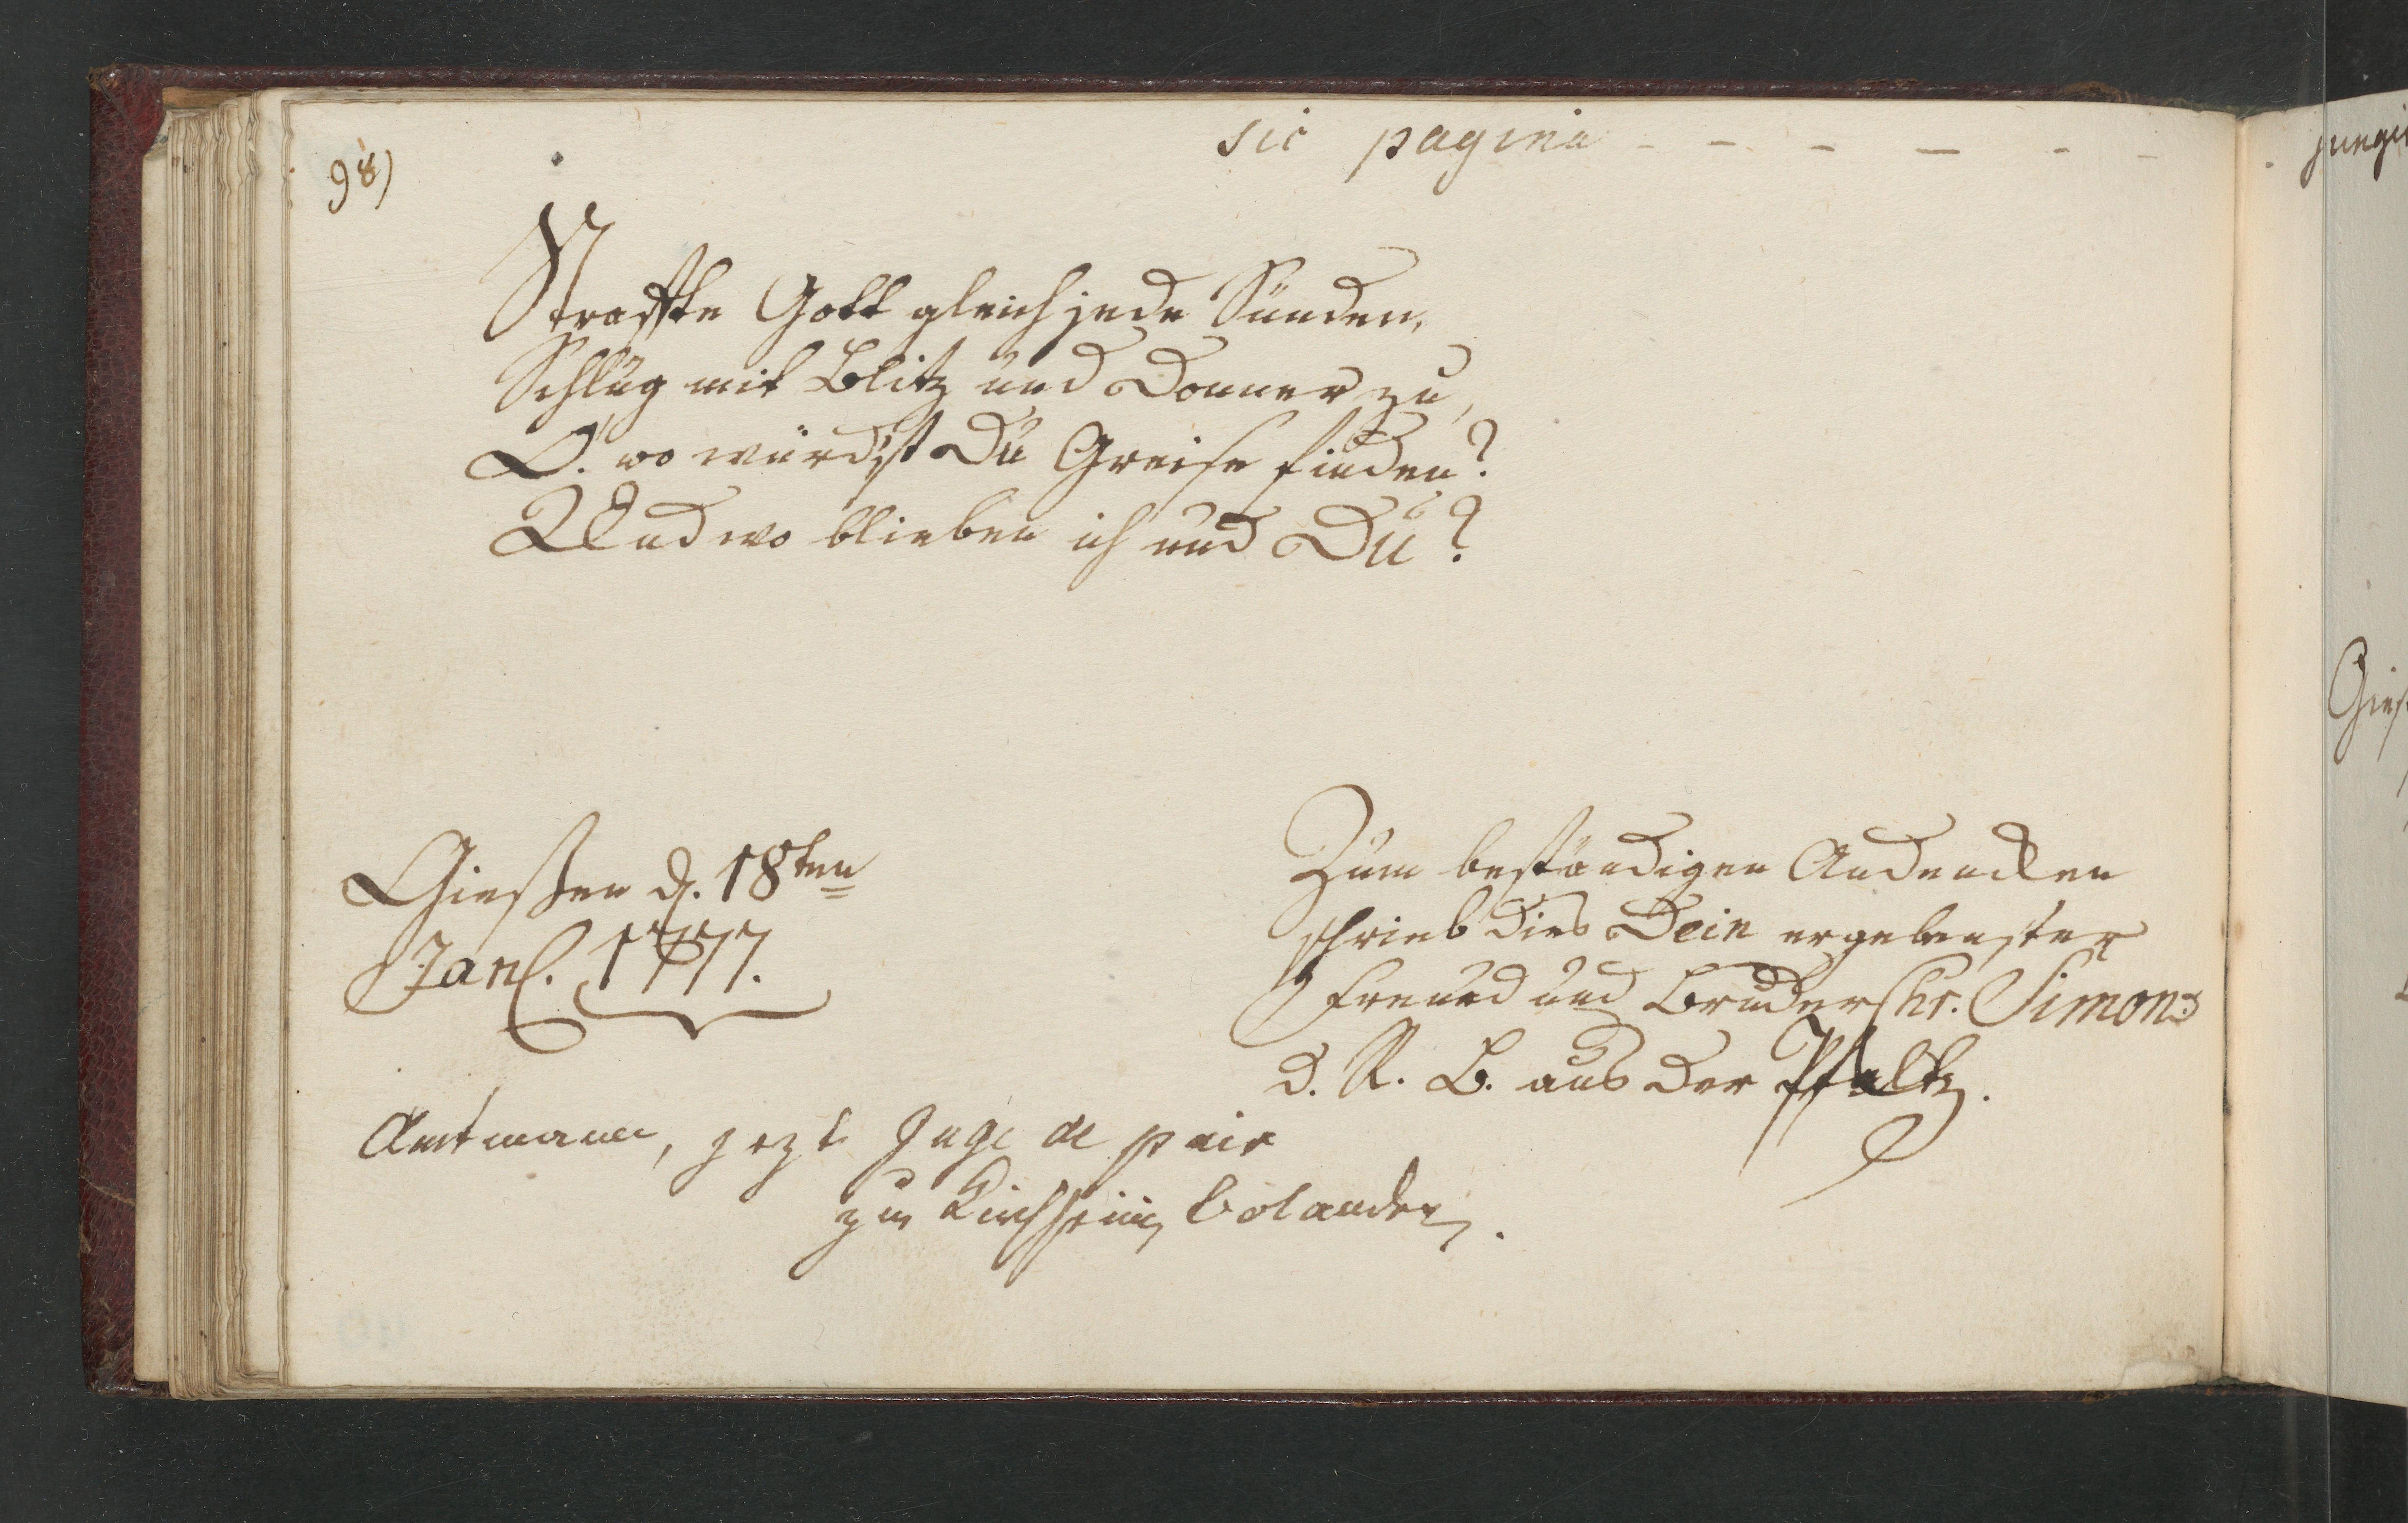 98)
sic pagina - - - - - -
Straffte Gott gleich jede Sünden,
Schlüg mit Blitz und Donner zu,
O! wo würdst Du Greise finden?
Und wo blieben ich und Du?
Giessen d. 18ten
Jan. 1777.
Zum beständigen Andencken
schrieb dies Dein ergebenster
Freund und Bruder Chr. Simon
d. R. B. aus der Pfaltz.
Amtmann, jezt Juge de paix
zu Kirchheim bolanden.